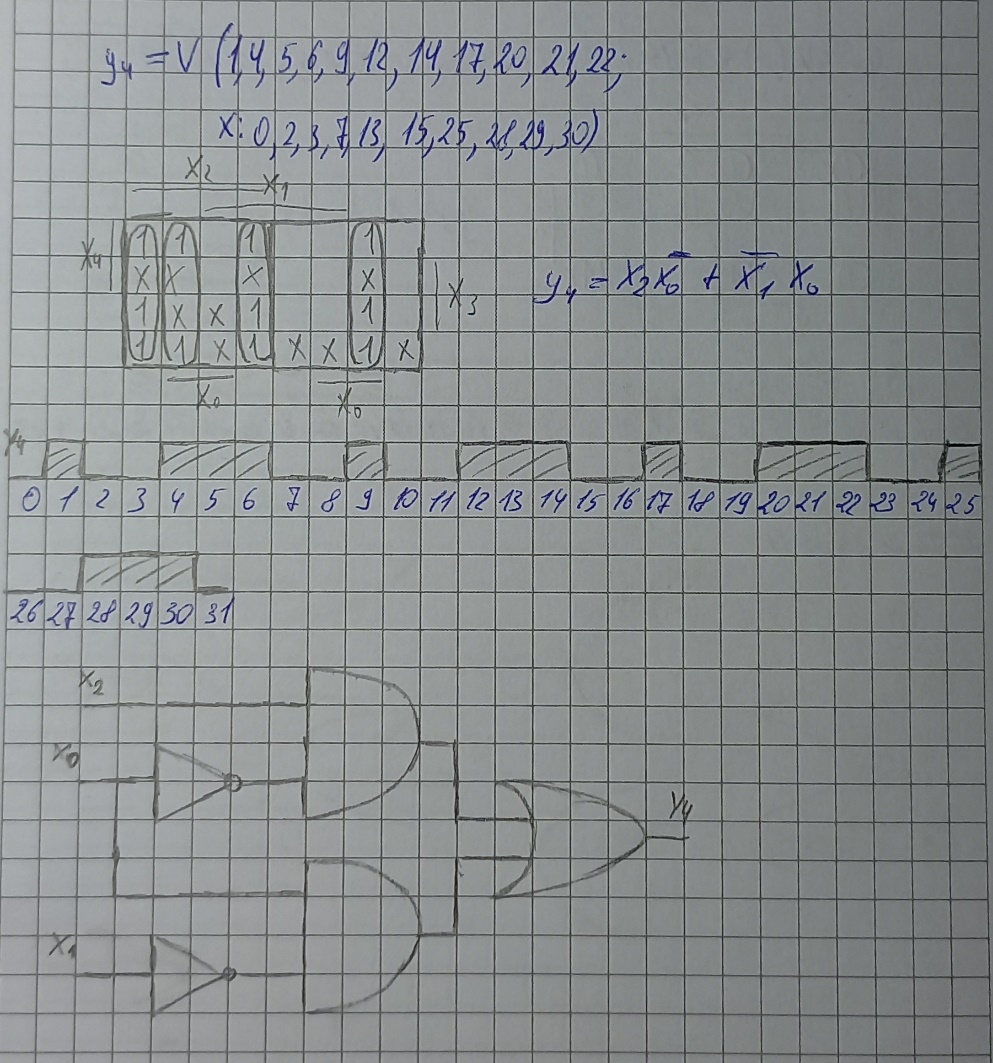 y₄ = V (1,4, 5, 6, 9, 12, 14, 17, 20, 21, 22;
x: 0, 2, 3, 7, 13, 15, 25, 28, 29, 30)
X₂
X₁
X₄ 1 1 1 1
X X X X X₃
1 X X 1 1
1 1 X 1 X X 1 X
X₀ X₀
y₄ = X₂X̅₀ + X̅₁ X₀
Y₄
0 1 2 3 4 5 6 7 8 9 10 11 12 13 14 15 16 17 18 19 20 21 22 23 24 25
26 27 28 29 30 31
X₂
X₀
Y₄
X₁